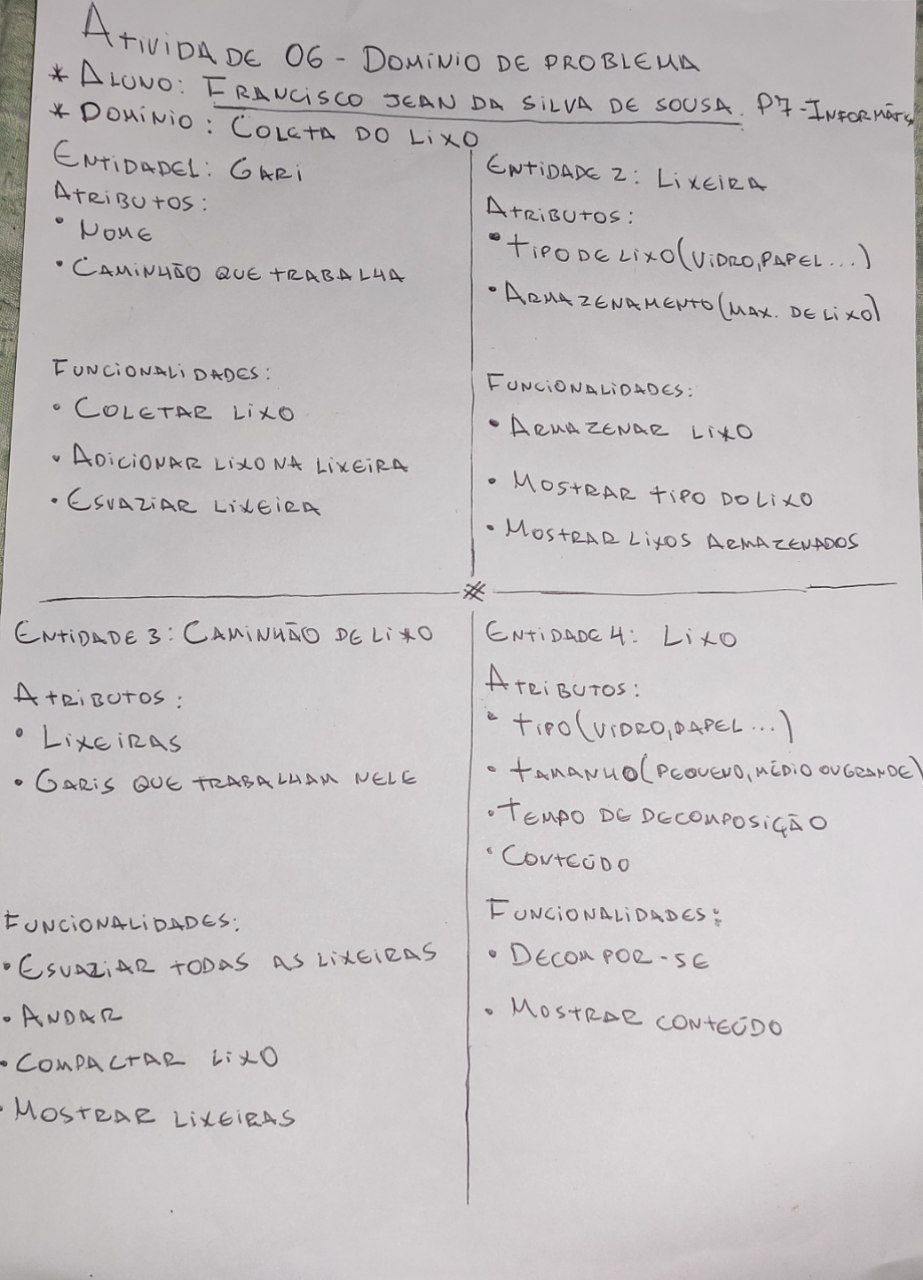 ATIVIDADE 06 - DOMÍNIO DE PROBLEMA
* ALUNO: FRANCISCO JEAN DA SILVA DE SOUSA. P7-INFORMÁTICA
* DOMÍNIO: COLETA DO LIXO
ENTIDADE1: GARI
ATRIBUTOS:
• NOME
• CAMINHÃO QUE TRABALHA
FUNCIONALIDADES:
• COLETAR LIXO
• ADICIONAR LIXO NA LIXEIRA
• ESVAZIAR LIXEIRA
ENTIDADE 2: LIXEIRA
ATRIBUTOS:
• TIPO DE LIXO (VIDRO, PAPEL...)
• ARMAZENAMENTO (MAX. DE LIXO)
FUNCIONALIDADES:
• ARMAZENAR LIXO
• MOSTRAR TIPO DO LIXO
• MOSTRAR LIXOS ARMAZENADOS
ENTIDADE 3: CAMINHÃO DE LIXO
ATRIBUTOS:
• LIXEIRAS
• GARIS QUE TRABALHAM NELE
FUNCIONALIDADES:
• ESVAZIAR TODAS AS LIXEIRAS
• ANDAR
• COMPACTAR LIXO
• MOSTRAR LIXEIRAS
ENTIDADE 4: LIXO
ATRIBUTOS:
• TIPO (VIDRO, PAPEL...)
• TAMANHO (PEQUENO, MÉDIO OU GRANDE)
• TEMPO DE DECOMPOSIÇÃO
• CONTEÚDO
FUNCIONALIDADES:
• DECOMPOR-SE
• MOSTRAR CONTEÚDO